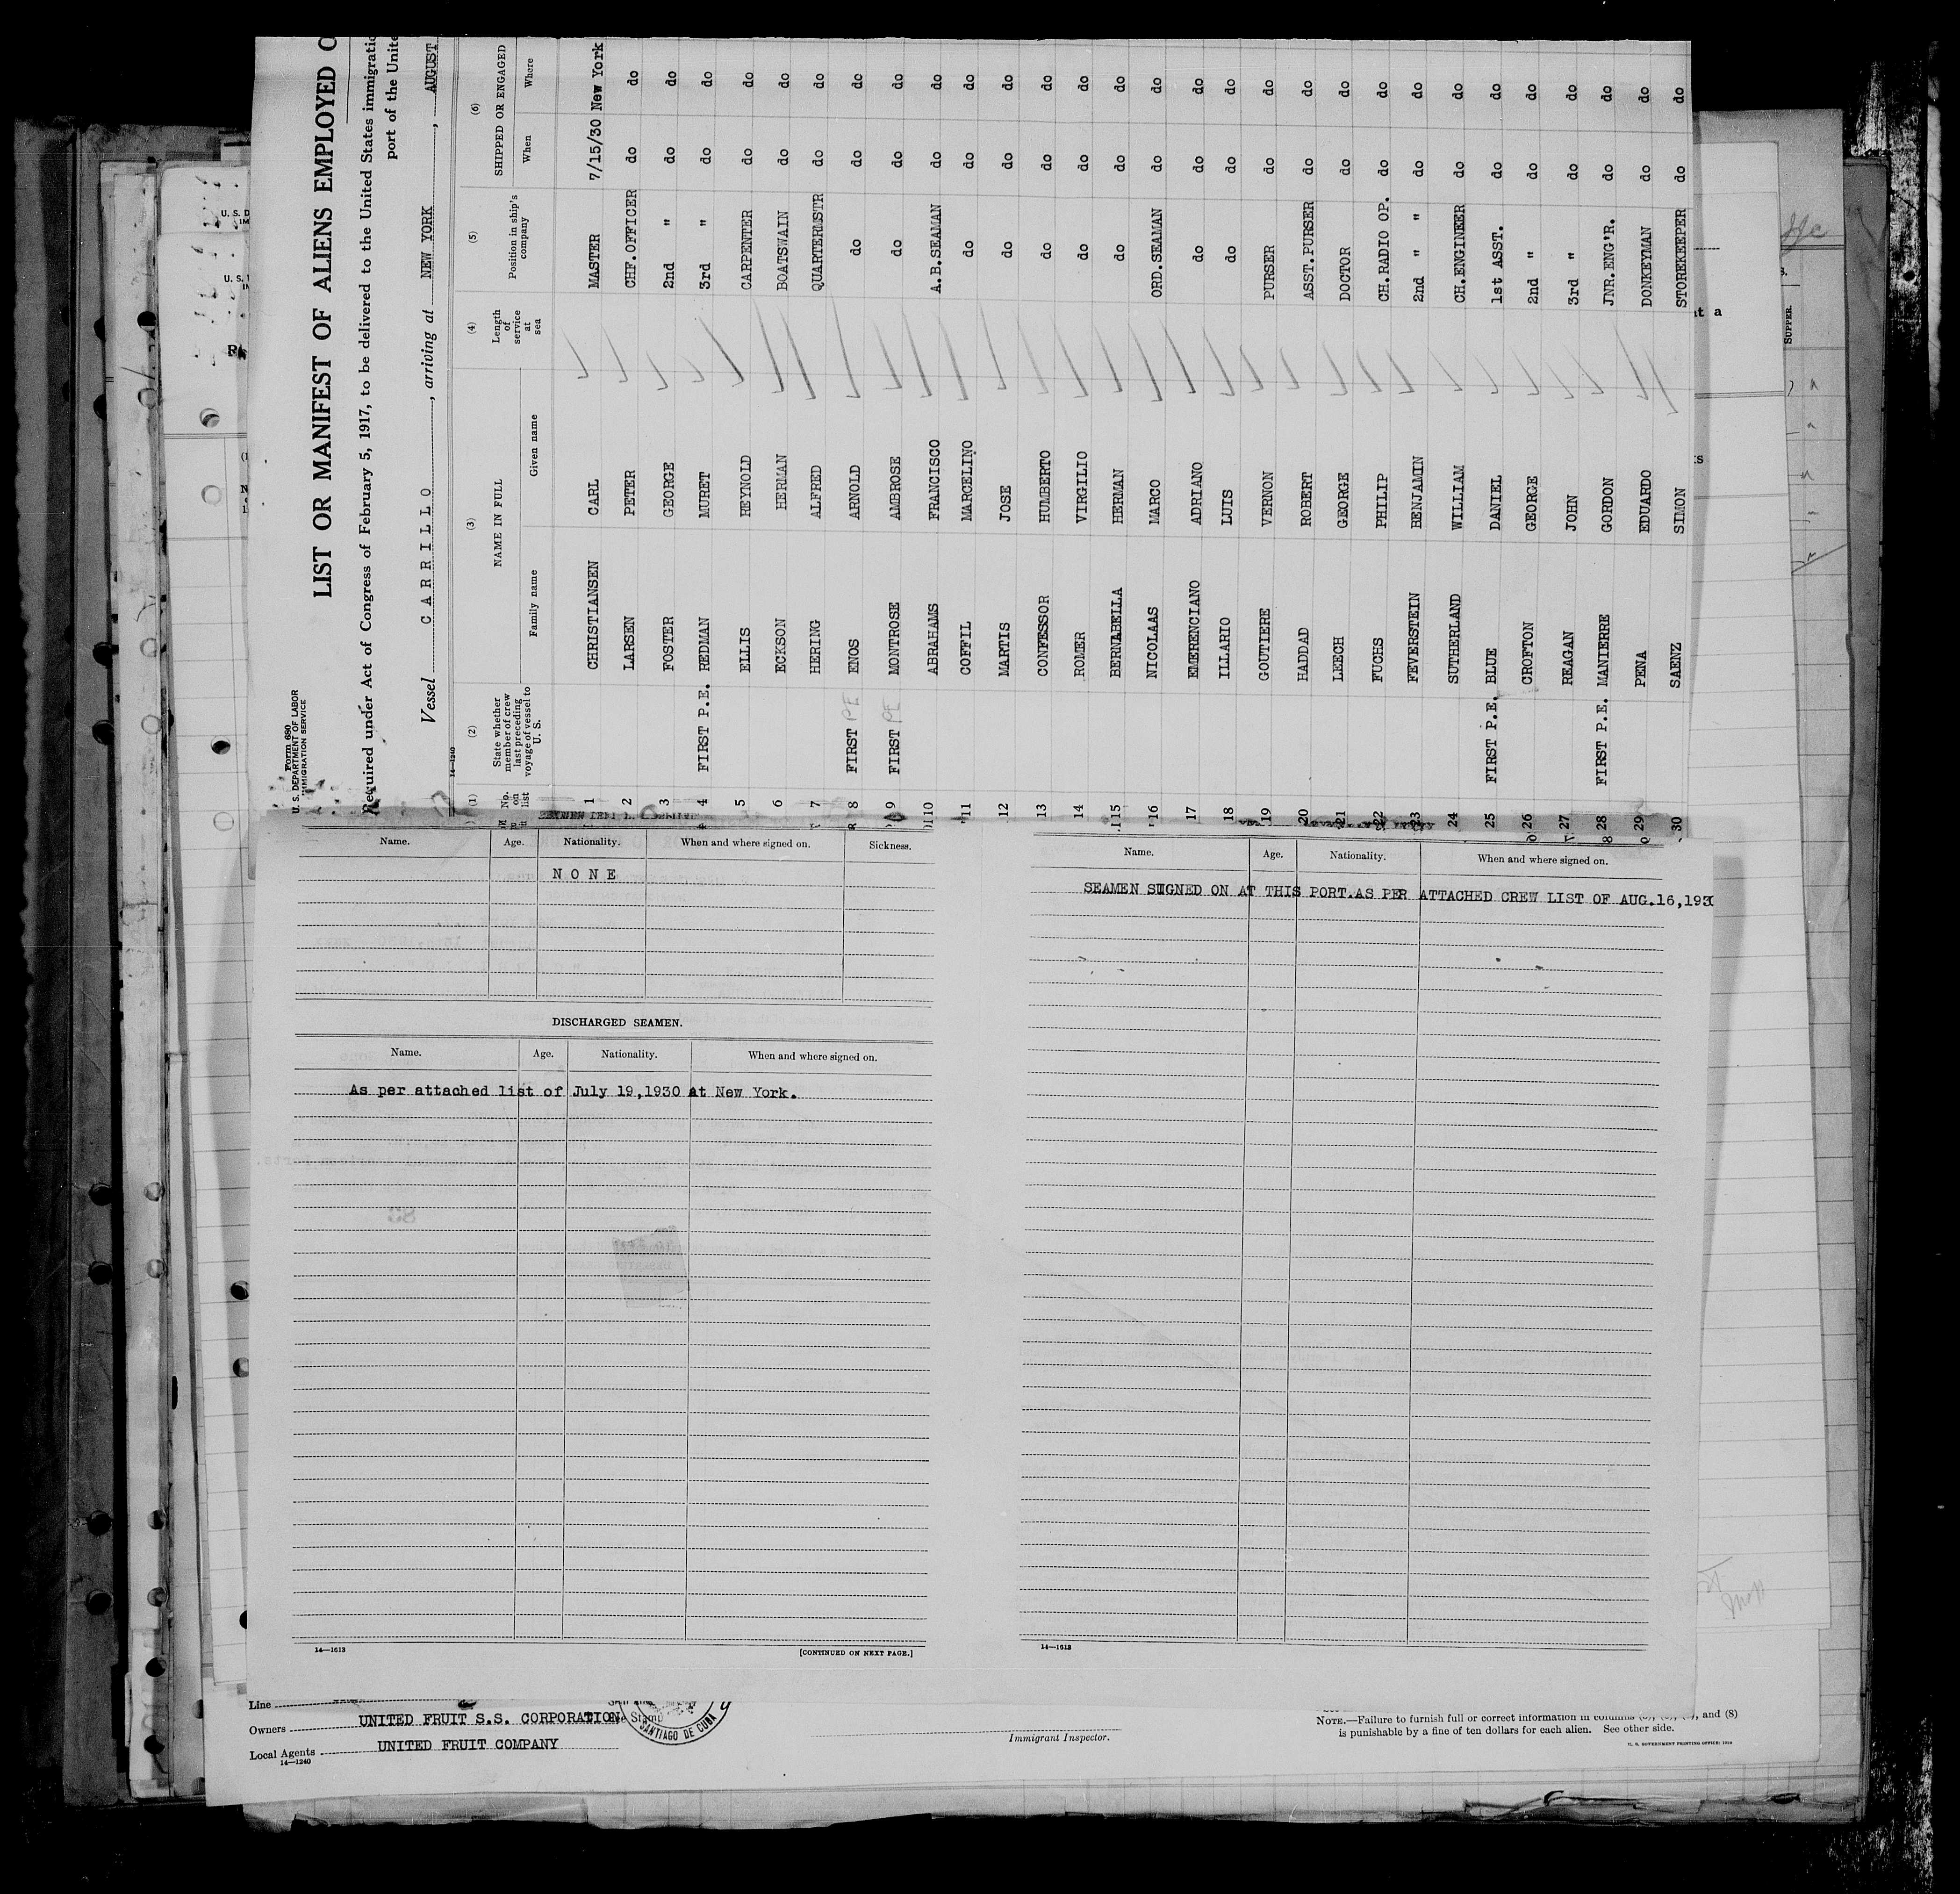 Form 680
U. S. DEPARTMENT OF LABOR
IMMIGRATION SERVICE
LIST OR MANIFEST OF ALIENS EMPLOYED O
Required under Act of Congress of February 5, 1917, to be delivered to the United States immigratio
port of the Unite
Vessel CARRILLO, arriving at NEW YORK, AUGUST
14—1240
(1) (2) (3) (4) (5) (6)
No. on list State whether member of crew last preceding voyage of vessel to U. S. NAME IN FULL Length of service at sea Position in ship's company SHIPPED OR ENGAGED
Family name Given name When Where
1 CHRISTIANSEN CARL MASTER 7/15/30 New York
2 LARSEN PETER CHF.OFFICER do do
3 FOSTER GEORGE 2nd " do do
4 FIRST P.E. REDMAN MURET 3rd " do do
5 ELLIS REYNOLD CARPENTER do do
6 ECKSON HERMAN BOATSWAIN do do
7 HERING ALFRED QUARTERMSTR do do
8 FIRST PE ENOS ARNOLD do do do
9 FIRST PE MONTROSE AMBROSE do do do
10 ABRAHAMS FRANCISCO A.B.SEAMAN do do
11 COFFIL MARCELINO do do do
12 MARTIS JOSE do do do
13 CONFESSOR HUMBERTO do do do
14 ROMER VIRGILIO do do do
15 BERNABELLA HERMAN do do do
16 NICOLAAS MARCO ORD.SEAMAN do do
17 EMERENCIANO ADRIANO do do do
18 ILLARIO LUIS do do do
19 GOUTIERE VERNON PURSER do do
20 HADDAD ROBERT ASST.PURSER do do
21 LEECH GEORGE DOCTOR do do
22 FUCHS PHILIP CH.RADIO OP. do do
23 FEVERSTEIN BENJAMIN 2nd " " do do
24 SUTHERLAND WILLIAM CH.ENGINEER do do
25 FIRST P.E. BLUE DANIEL 1st ASST. do do
26 CROFTON GEORGE 2nd " do do
27 REAGAN JOHN 3rd " do do
28 FIRST P.E. MANIERRE GORDON JNR.ENG'R. do do
29 PENA EDUARDO DONKEYMAN do do
30 SAENZ SIMON STOREKEEPER do do
Name. Age. Nationality. When and where signed on. Sickness.
NONE
DISCHARGED SEAMEN.
Name. Age. Nationality. When and where signed on.
As per attached list of July 19,1930 at New York.
14—1613 [CONTINUED ON NEXT PAGE.]
Name. Age. Nationality. When and where signed on.
SEAMEN SIGNED ON AT THIS PORT.AS PER ATTACHED CREW LIST OF AUG.16,193
14—1613
Line
Owners UNITED FRUIT S.S. CORPORATION
Local Agents UNITED FRUIT COMPANY
14—1240
SANTIAGO DE CUBA
Immigrant Inspector.
NOTE.—Failure to furnish full or correct information in columns and (8)
is punishable by a fine of ten dollars for each alien. See other side.
U. S. GOVERNMENT PRINTING OFFICE
SUPPER.